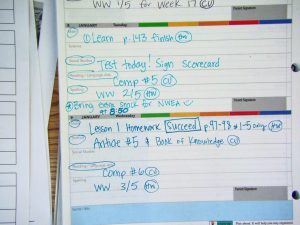 WW 1/5 for Week 17 CU
Parent Signature
8 JANUARY Tuesday
Math
① Learn p. 143 finish HW
Science
Social Studies
Test today! Sign scorecard
Reading / Language Arts
Comp #5 CU
Spelling
WW 2/5 HW
Bring extra snack for NWEA
at 8:50
Parent Signature
9 JANUARY Wednesday
Lesson 1 Homework Succeed p. 97-98 #1-5 only HW
Article #5 & Book of Knowledge CU
Social Studies
Comp #6 CU
Spelling
WW 3/5 HW
Parent Signature